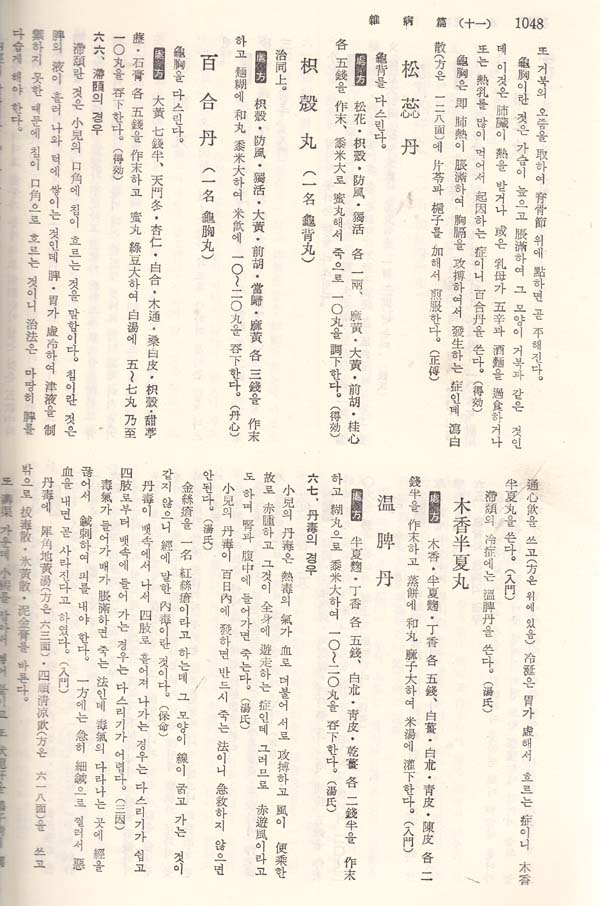 雜病篇(十一) 1048
또 거북의 오줌을 取하여 脊骨節 위에 點하면 곧 주해진다.
龜胸이란 것은 가슴이 높으고 脹滿하여 그 모양이 거북과 같은 것인
데 이것은 肺臟이 熱을 받거나 或은 乳母가 五辛과 酒麵을 過食하거나
또는 熱乳를 많이 먹어서 起因하는 症이니 百合丹을 쓴다。(得効)
龜胸은 即 肺熱이 脹滿하여 胸膈을 攻搏하여서 發生하는 症인데 瀉白
散(方은 一二八面)에 片芩과 梔子를 加해서 煎服한다。(正傳)
松蕊丹
龜背를 다스린다。
處方 松花・枳殼・防風・獨活 各一兩、麻黃・大黃・前胡・桂心
各五錢을 作末、黍米大로 蜜丸해서 죽으로 一〇丸을 調下한다。(得効)
枳殼丸 (一名 龜背丸)
治同上。
處方 枳殼・防風・獨活・大黃・前胡・當歸・麻黃 各三錢을 作末
하고 麵糊에 和丸 黍米大하여 米飮에 一〇~二〇丸을 呑下한다。(丹心)
百合丹 (一名 龜胸丸)
龜胸을 다스린다。
處方 大黃 七錢半、天門冬・杏仁・白合・木通・桑白皮・枳殼・甜葶
藶・石膏 各五錢을 作末하고 蜜丸 綠豆大하여 白湯에 五~七丸 乃至
一〇丸을 呑下한다。(得効)
六六、滯頤의 경우
滯頤란 것은 小兒의 口角에 침이 흐르는 것을 말함이다。침이란 것은
脾의 液이 흘러 나와 턱에 쌓이는 것인데 脾・胃가 虛冷하여 津液을 制
禦하지 못한 때문에 침이 口角으로 흐르는 것이니 治法은 마땅히 脾를
다습게 해야 한다。
通心飮을 쓰고(方은 위에 있음) 冷涎은 胃가 虛해서 흐르는 症이니 木香
半夏丸을 쓴다。(入門)
滯頤의 冷症에는 溫脾丹을 쓴다。(湯氏)
木香半夏丸
處方 木香・半夏麴・丁香 各五錢、白薑・白朮・靑皮・陳皮 各二
錢半을 作末하고 蒸餠에 和丸 麻子大하여 米湯에 灌下한다。(入門)
溫脾丹
處方 半夏麴・丁香 各五錢、白朮・靑皮・乾薑 各二錢半을 作末
하고 糊丸으로 黍米大하여 一〇~二〇丸을 呑下한다。(湯氏)
六七、丹毒의 경우
小兒의 丹毒은 熱毒의 氣가 血로 더불어 서로 攻搏하고 風이 便乘한
故로 赤腫하고 그것이 全身에 遊走하는 症인데 그러므로 赤遊風이라고
도 하며 腎과 腹中에 들어가면 죽는다。(湯氏)
小兒의 丹毒이 百日內에 發하면 반드시 죽는 法이니 急救하지 않으면
안된다。(湯氏)
金絲瘡을 一名 紅絲瘡이라고 하는데 그 모양이 線이 굵고 가는 것이
같지 않으니 經에 말한 內毒이 이런 것이다。(保命)
丹毒이 뱃속에서 나서 四肢로 흩어져 나가는 경우는 다스리기가 쉽고
四肢로부터 뱃속에 들어 가는 경우는 다스리기가 어렵다。(三因)
毒氣가 들어가 배가 脹滿하면 죽는 法인데 毒氣의 다라나는 곳에 經을
끊어서 鍼刺하여 피를 내야 한다。一方에는 急히 細鍼으로 찔러서 惡
血을 내면 곧 사라진다고 하였다。(入門)
丹毒에 犀角地黃湯(方은 六三面)・四順淸凉飮(方은 六一八面)을 쓰고
밖으로 拔毒散・氷黃散・泥金膏를 바른다。